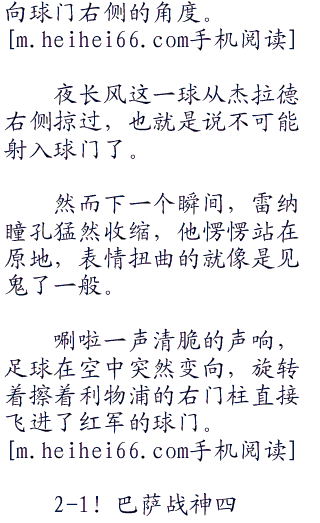 向球门右侧的角度。
[m.heihei66.com手机阅读]
夜长风这一球从杰拉德
右侧掠过，也就是说不可能
射入球门了。
然而下一个瞬间，雷纳
瞳孔猛然收缩，他愣愣站在
原地，表情扭曲的就像是见
鬼了一般。
唰啦一声清脆的声响，
足球在空中突然变向，旋转
着擦着利物浦的右门柱直接
飞进了红军的球门。
[m.heihei66.com手机阅读]
2-1！巴萨战神四